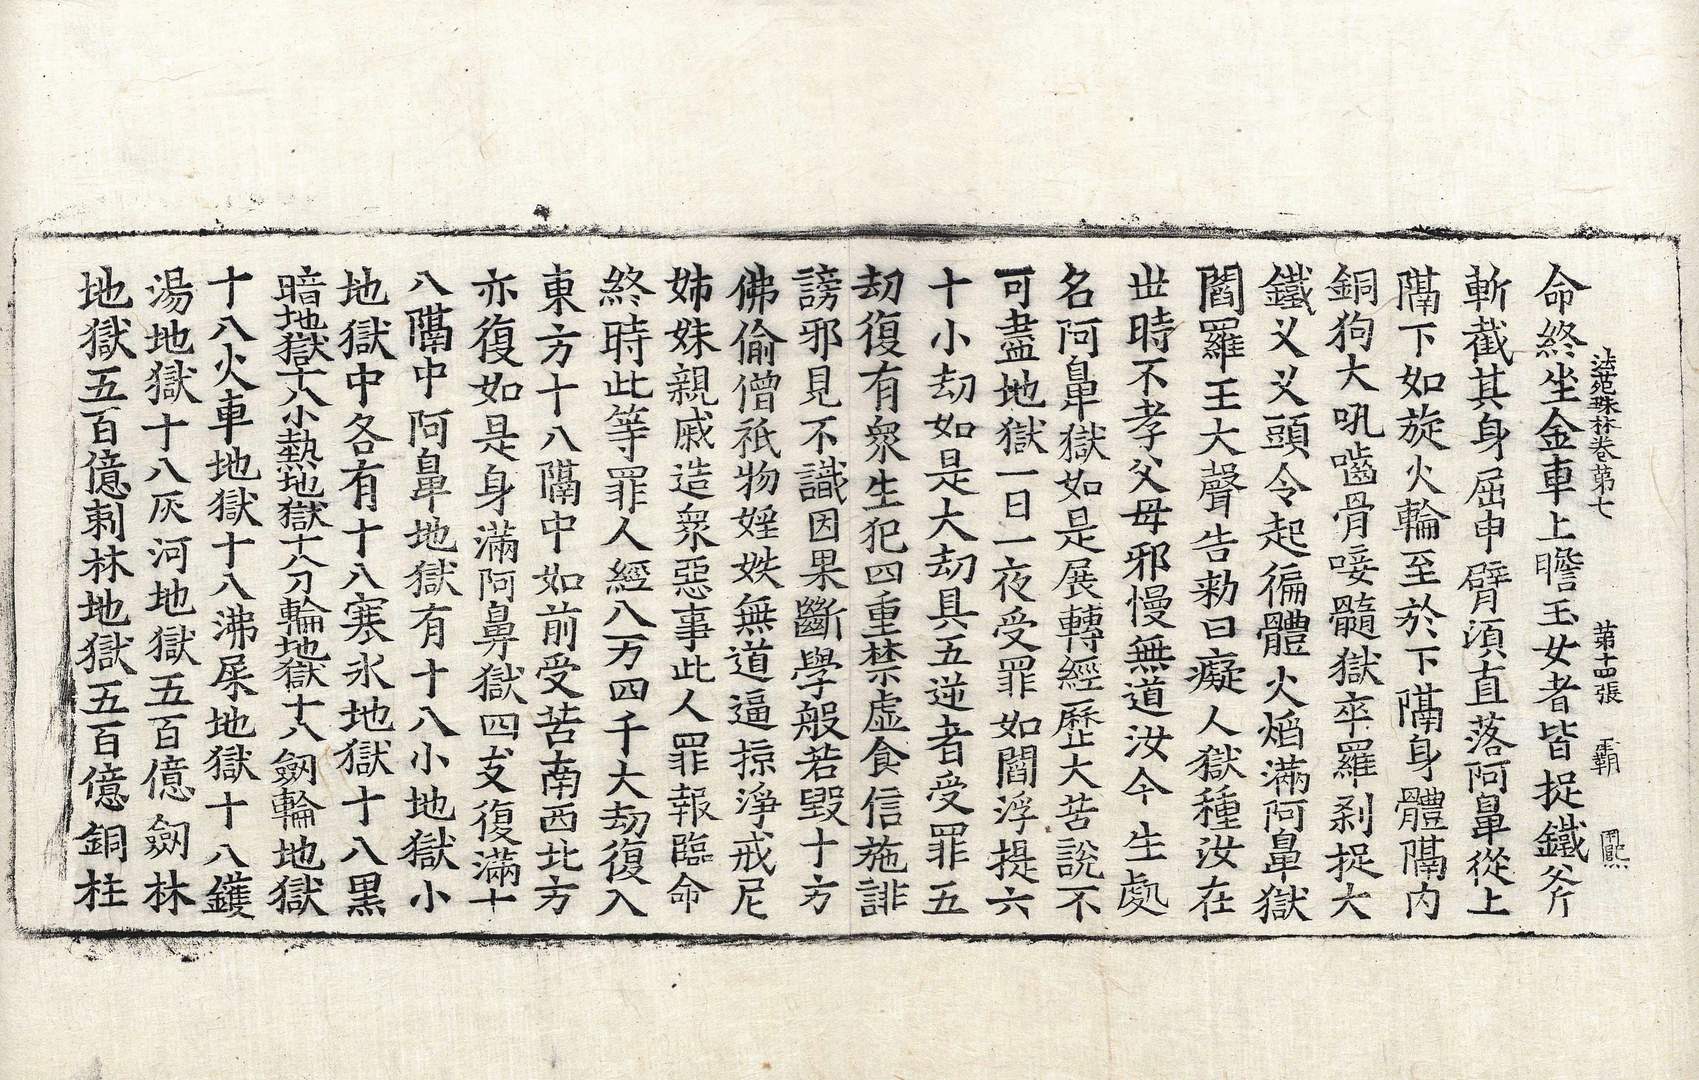 法苑珠林卷苐七 苐十四張 覇 周熙
命終坐金車上瞻玉女者皆捉鐵斧斤
斬截其身屈申臂湏直落阿鼻從上
隔下如旋火輪至於下隔身體隔内
銅狗大吼嚙骨唼髓獄卒羅剎捉大
鐵叉叉頭令起徧體火焰滿阿鼻獄
閻羅王大聲告勑曰癡人獄種汝在
世時不孝父母邪慢無道汝今生處
名阿鼻獄如是展轉經歷大苦說不
可盡地獄一日一夜受罪如閻浮提六
十小劫如是大劫具五逆者受罪五
劫復有衆生犯四重禁虛食信施誹
謗邪見不識因果斷學般若毀十方
佛偷僧祇物婬妷無道逼掠淨戒尼
姊妹親戚造衆惡事此人罪報臨命
終時此等罪人經八万四千大劫復入
東方十八隔中如前受苦南西北方
亦復如是身滿阿鼻獄四支復滿十
八隔中阿鼻地獄有十八小地獄小
地獄中各有十八寒氷地獄十八黑
暗地獄十八小熱地獄十八刀輪地獄十八劒輪地獄
十八火車地獄十八沸屎地獄十八鑊
湯地獄十八灰河地獄五百億劒林
地獄五百億刺林地獄五百億銅柱